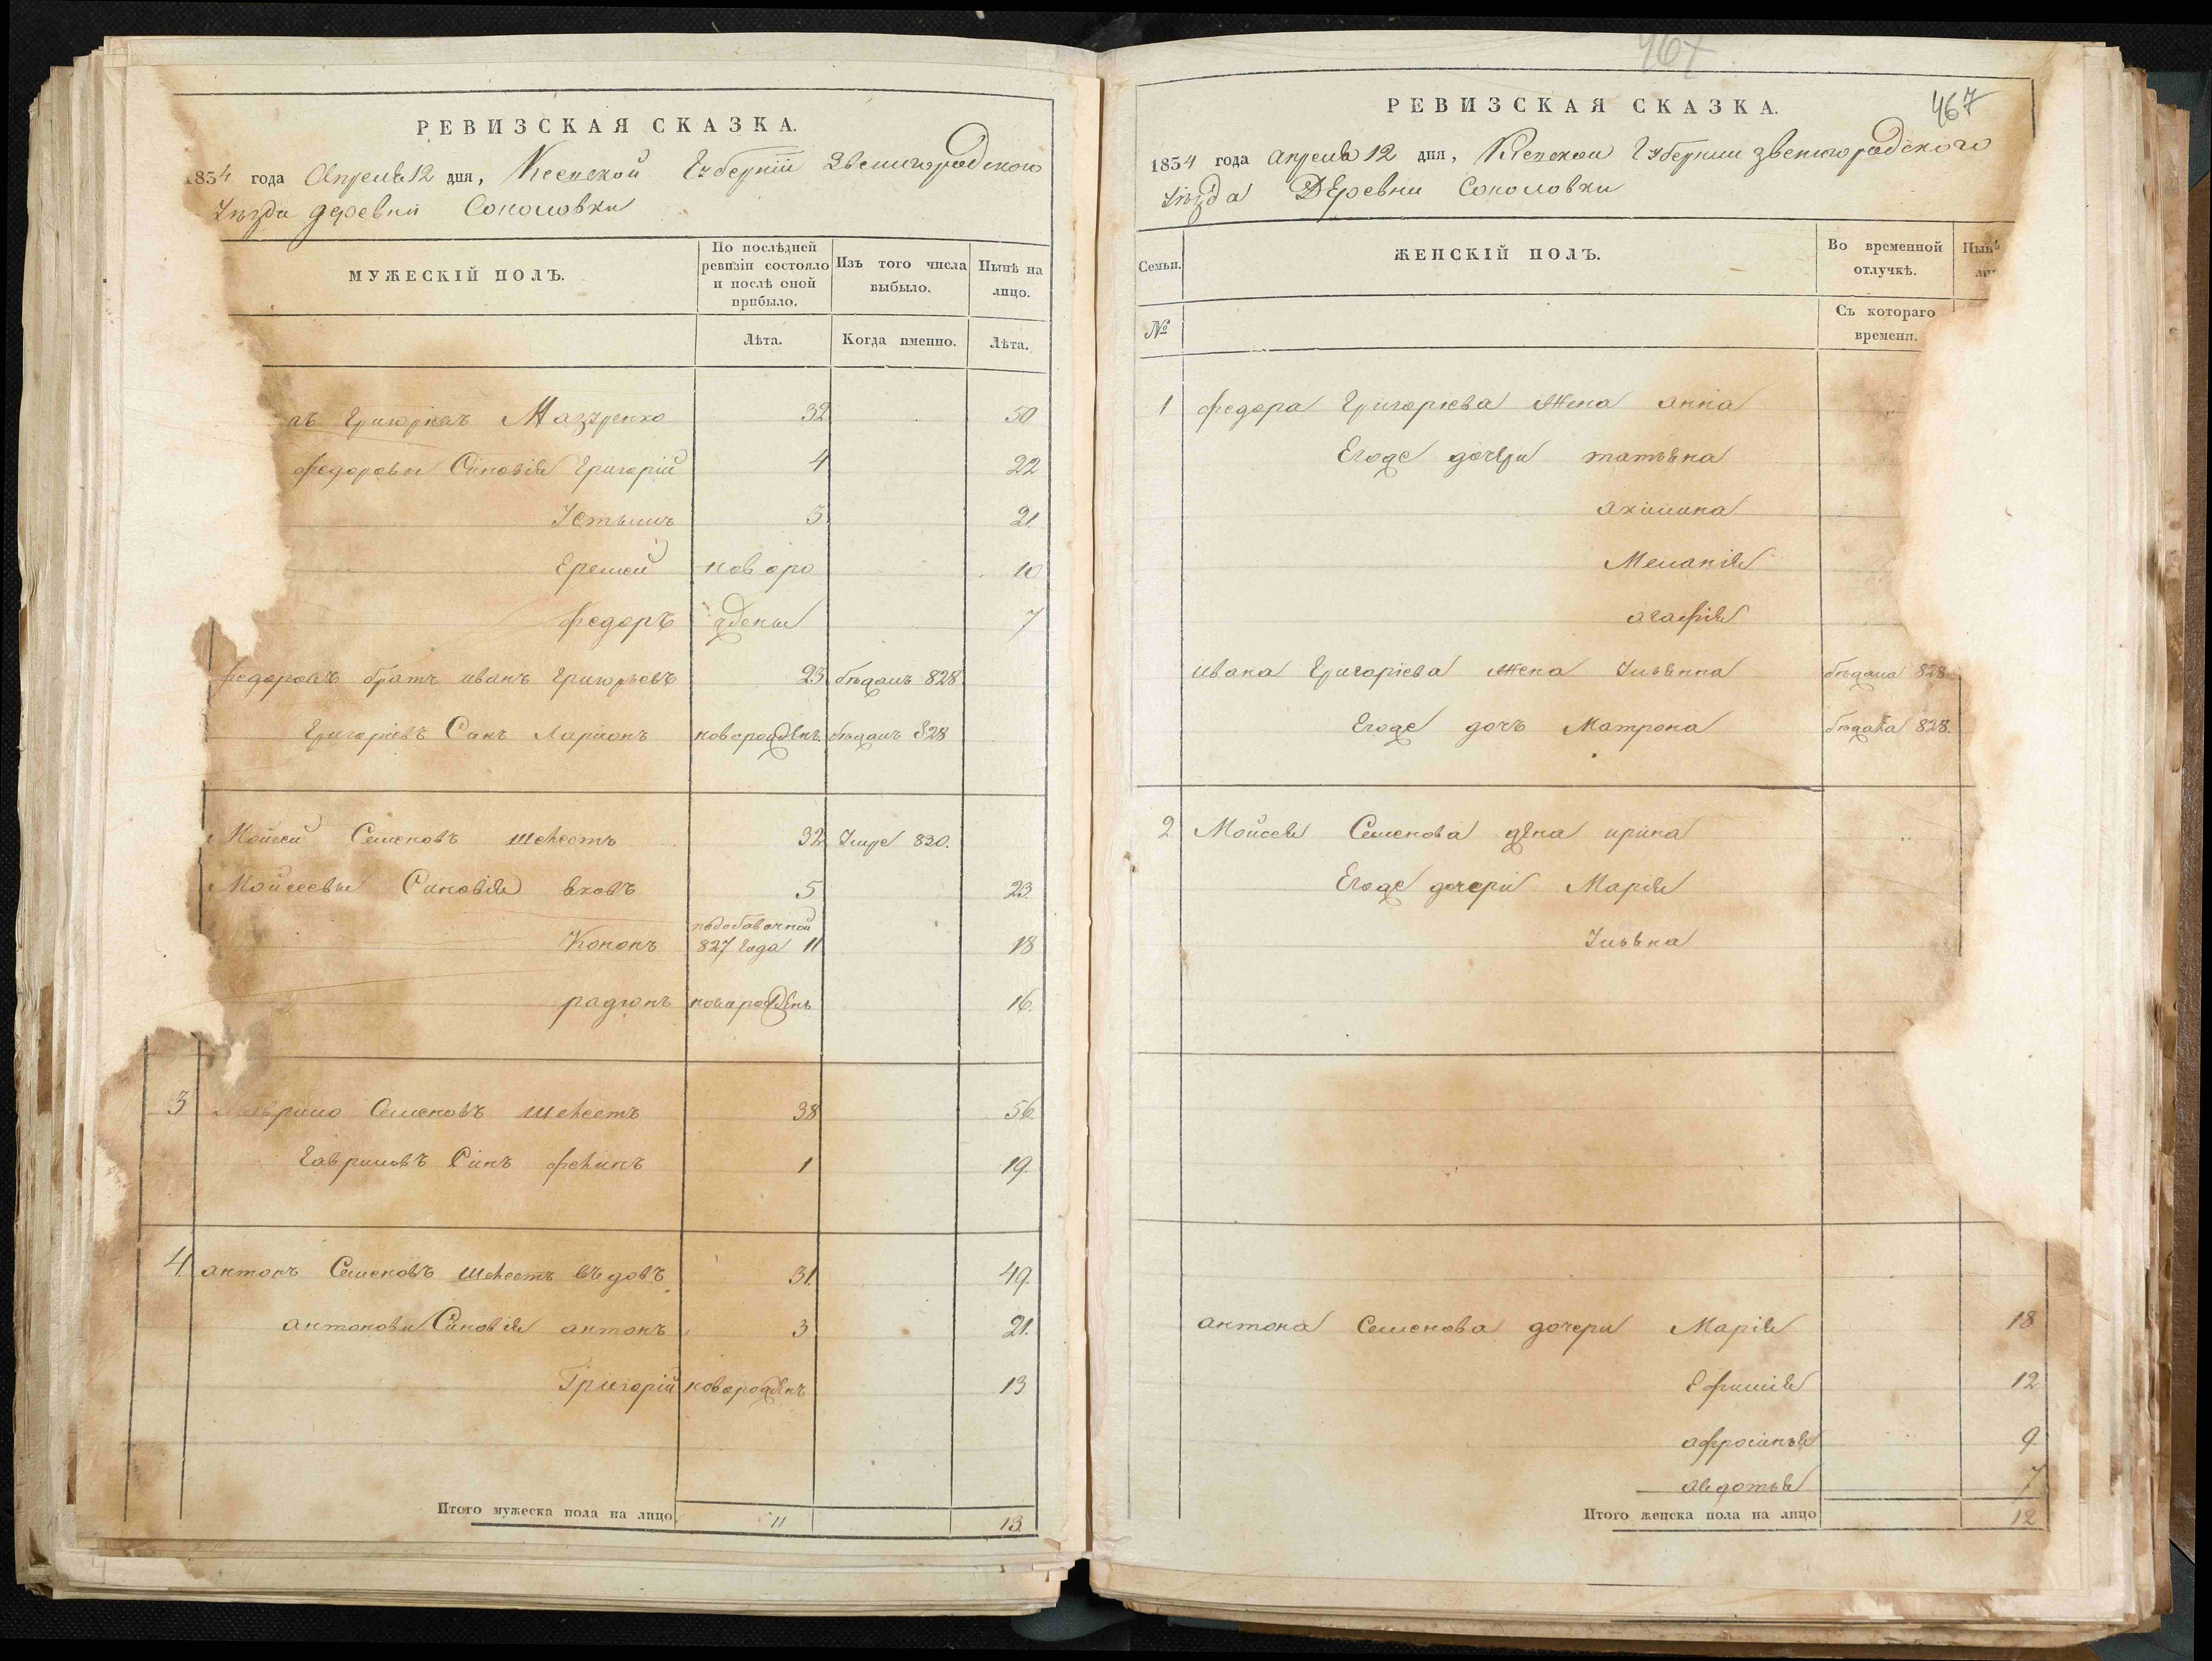 РЕВИЗСКАЯ СКАЗКА.
1834 года Апреля 12 дня, Киевской Губерніи Звенигородского
Уезда деревни Соколовки
МУЖЕСКІЙ ПОЛЪ.
По послѣдней ревизіи состояло и послѣ оной прибыло.
Изъ того числа выбыло.
Нынѣ на лицо.
Лѣта.
Когда именно.
Лѣта.
ъ Григориевъ Мазуренко 32 50
Федоровы Синовія Григорій 4 22
Устымъ 3 21.
Еремей новоро 10
Федоръ жденые 7
Федоровъ братъ иванъ Григорьевъ 23 бежалъ 828
Григоріевъ Синъ Ларионъ новорожденъ. бежалъ 828
Мойсей Семеновъ шелестъ 32 Умре 830.
Мойсеевы Синовія 5 23.
подобавочной
Кононъ 827 Года 11 18
радионъ новорожденъ 16.
3 Гаврило Семеновъ шелестъ 38 56.
Гавриловъ Синъ 1 19.
4 антонъ Семеновъ шелестъ въдовъ 31. 49.
антонови Синовія антонъ 3 21.
Григорій новорожденъ 13
Итого мужеска пола на лицо 11 13.
467
РЕВИЗСКАЯ СКАЗКА.
467
1834 года апреля 12 дня, Киевской Губернии звенигородского
Уезда Деревни Соколовки
Семьи.
ЖЕНСКІЙ ПОЛЪ.
Во временной отлучкѣ.
Нынѣ
№
Съ котораго времени.
1 федора Григориева Жена анна
Егоже дочери татьяна
акилина
Меланія
агафія
ивана Григоріева Жена Ульянна бежала 828.
Егоже дочъ Матрона бежала 828.
2 Моисея Семенова жена ирина
Егоже дочери Марія
Ульяна
антона Семенова дочери Марія 18
Ефимія 12
афросинья 9.
авдотья 7
Итого женска пола на лицо 12